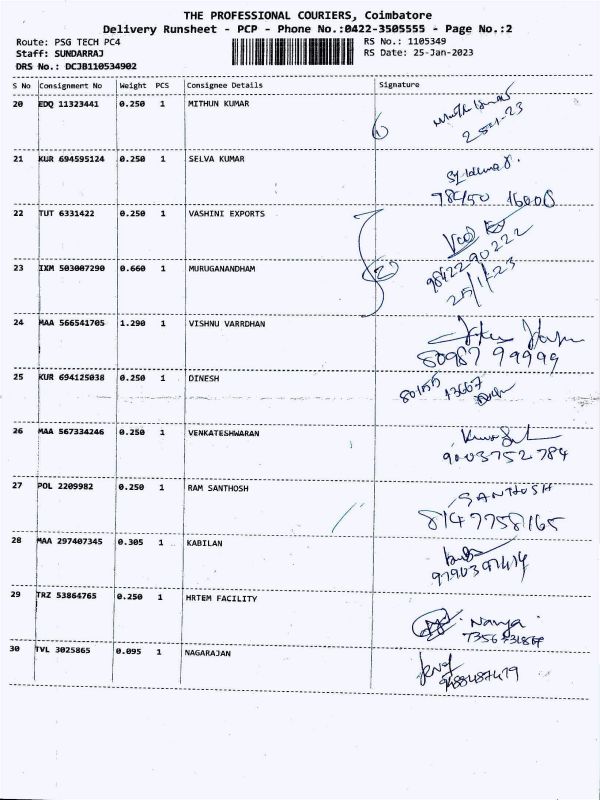 THE PROFESSIONAL COURIERS, Coimbatore
Delivery Runsheet - PCP - Phone No.:0422-3505555 - Page No.:2
Route: PSG TECH PC4
RS No.: 1105349
Staff: SUNDARRAJ
RS Date: 25-Jan-2023
DRS No.: DCJB110534902
S No Consignment No Weight PCS Consignee Details Signature
20 EDQ 11323441 0.250 1 MITHUN KUMAR
1
25-1-23
21 KUR 694595124 0.250 1 SELVA KUMAR
78450 16008
22 TUT 6331422 0.250 1 VASHINI EXPORTS
9842290222
23 IXM 503007290 0.660 1 MURUGANANDHAM
2
25/1/23
24 MAA 566541705 1.290 1 VISHNU VARRDHAN
80987 99999
25 KUR 694125038 0.250 1 DINESH
80155 13667
26 MAA 567334246 0.250 1 VENKATESHWARAN
9003752784
27 POL 2209982 0.250 1 RAM SANTHOSH
SANTHOSH
8147758165
28 MAA 297407345 0.305 1 KABILAN
29 TRZ 53864765 0.250 1 HRTEM FACILITY
Nanya
30 TVL 3025865 0.095 1 NAGARAJAN
9488487479